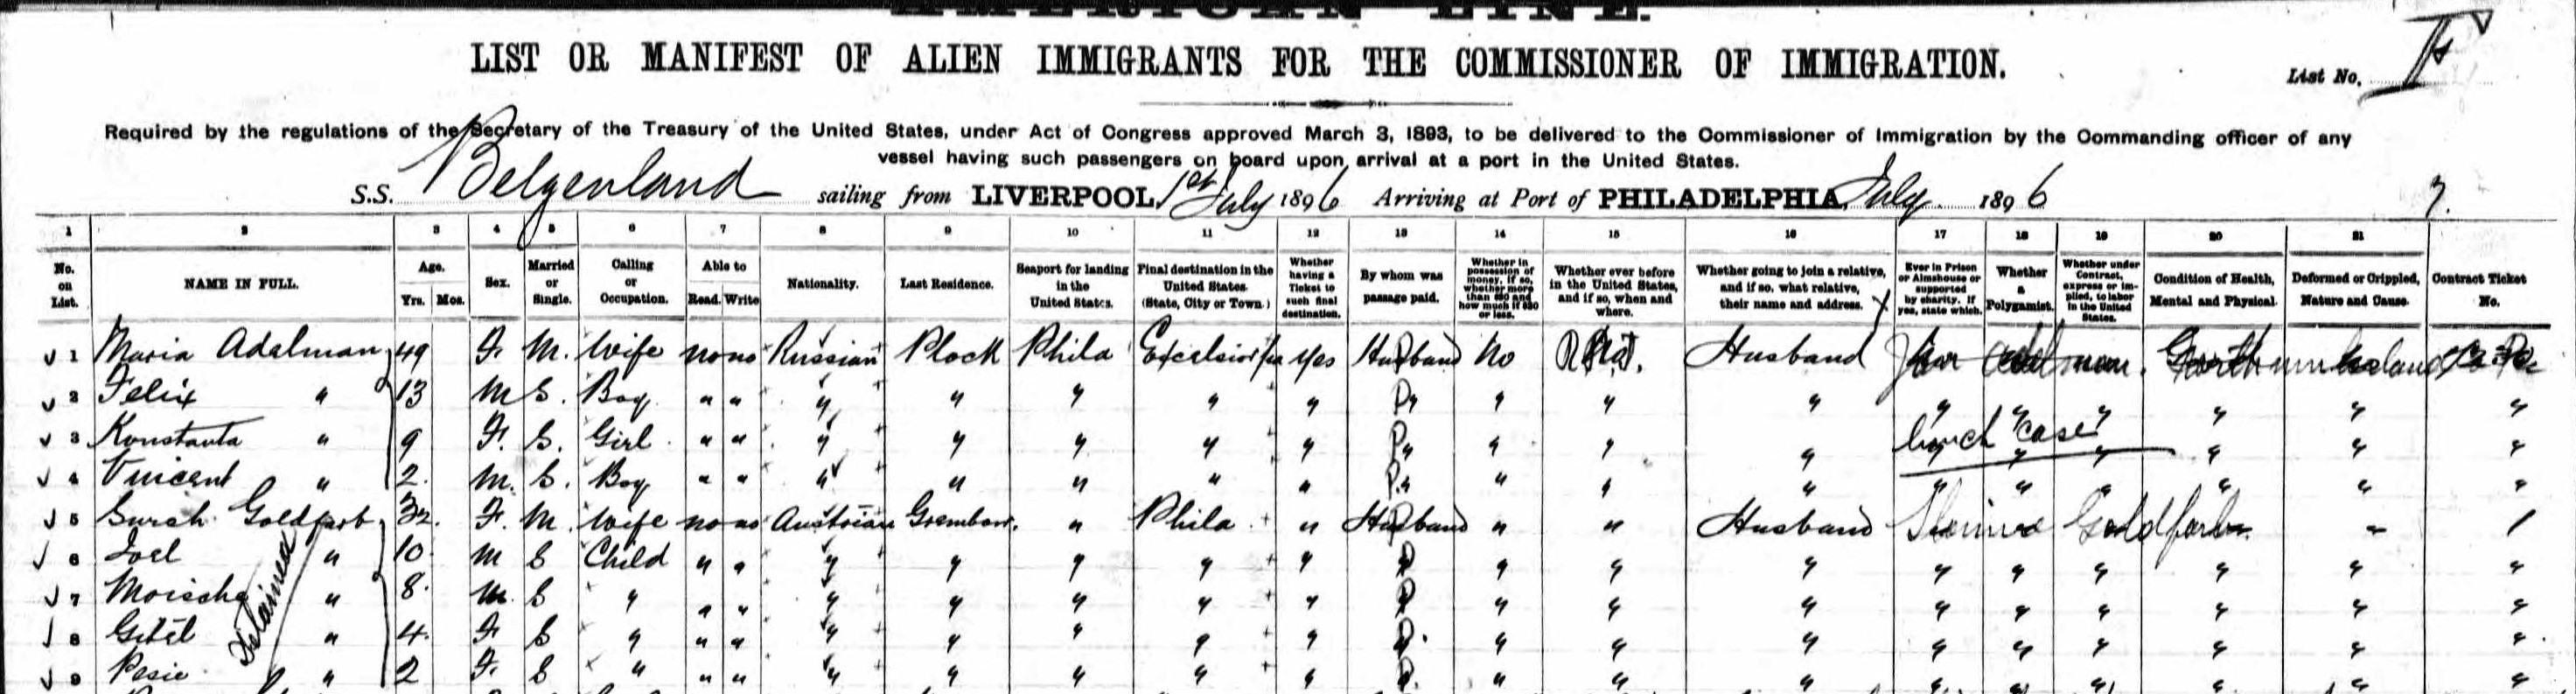 AMERICAN LINE.
LIST OR MANIFEST OF ALIEN IMMIGRANTS FOR THE COMMISSIONER OF IMMIGRATION.
List No.
Required by the regulations of the Secretary of the Treasury of the United States, under Act of Congress approved March 3, 1893, to be delivered to the Commissioner of Immigration by the Commanding officer of any
vessel having such passengers on board upon arrival at a port in the United States.
S.S. Belgenland sailing from LIVERPOOL, 1st July 1896 Arriving at Port of PHILADELPHIA, July 1896 7.
1 2 3 4 5 6 7 8 9 10 11 12 13 14 15 16 17 18 19 20 21
No. on List. NAME IN FULL. Age. Yrs. Mos. Sex. Married or Single. Calling or Occupation. Able to Read. Write Nationality. Last Residence. Seaport for landing in the United States. Final destination in the United States (State, City or Town.) Whether having a Ticket to such final destination. By whom was passage paid. Whether in possession of money, if so, whether more than $30 and how much if $30 or less. Whether ever before in the United States, and if so, when and where. Whether going to join a relative, and if so, what relative, their name and address. Ever in Prison or Almshouse or supported by charity. If yes, state which. Whether a Polygamist. Whether under Contract, express or implied, to labor in the United States. Condition of Health, Mental and Physical. Deformed or Crippled, Nature and Cause. Contract Ticket No.
1 Maria Adelman 49 F. M. Wife no no Russian Plock Phila Excelsior Pa Yes Husband No Husband Adelman. Northumberland Co Pa
2 Felix " 13 M S. Boy " " " " " " " " " " " " " " " " "
3 Konstanta " 9 F. S. Girl " " " " " " " " " " " " " " " " "
case
4 Vincent " 2. M. S. Boy " " " " " " " " " " " " " " " " "
5 Surah Goldfarb 32. F. M. Wife no no Austrian " Phila " Husband " " Husband Goldfarb
6 Joel " 10 M S Child " " " " " " " " " " " " " " " " "
7 Moische " 8. M. S " " " " " " " " " " " " " " " " " "
8 Gitel " 4. F S " " " " " " " " " " " " " " " " " "
9 Pesie " 2 F. S " " " " " " " " " " " " " " " " " "
Detained